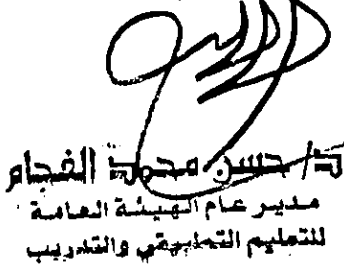 د/ حسن محمد الفجام
مدير عام الهيئة العامة
للتعليم التطبيقي والتدريب